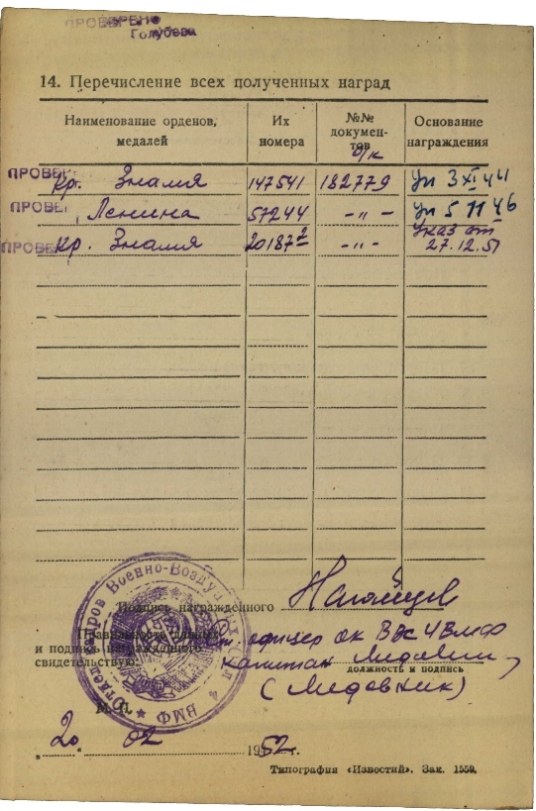 ПРОВЕРЕНО
Голубева
14. Перечисление всех полученных наград
Наименование орденов, медалей
Их номера
№№ документов
о/к
Основание награждения
ПРОВЕ Кр. Знамя 147541 182779 Уп 3 XI 44
ПРОВЕ Ленина 57244 -"- Уп 5 11 46
ПРОВЕ Кр. Знамя 201872 -"- Указ от 27.12.51
Подпись награжденного
Правильность данных
и подписи награжденного
свидетельствую:
офицер ОК ВВС 4 ВМФ
капитан
должность и подпись
(Медовник)
Отдел кадров Военно-Воздушных Сил 4 ВМФ
М. П.
20 02 1952 г.
Типография «Известий». Зак. 1559.